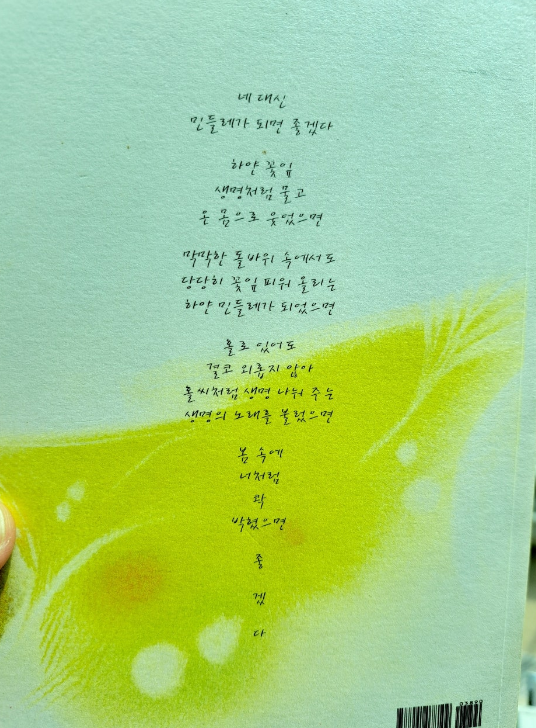 네 대신
민들레가 되면 좋겠다
하얀 꽃잎
생명처럼 물고
온 몸으로 웃었으면
막막한 돌바위 속에서도
당당히 꽃잎 피워 올리는
하얀 민들레가 되었으면
홀로 있어도
결코 외롭지 않아
홀씨처럼 생명 나눠 주는
생명의 노래를 불렀으면
봄 속에
너처럼
콱
박혔으면
좋
겠
다